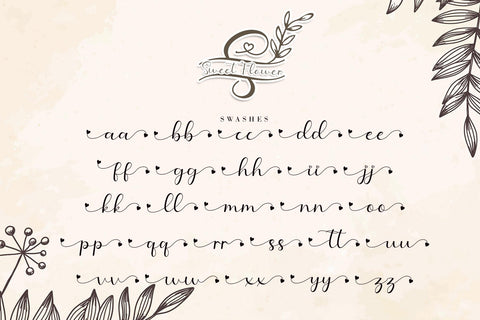 Sweet Flower
SWASHES
aa bb cc dd ee
ff gg hh ii jj
kk ll mm nn oo
pp qq rr ss tt uu
vv ww xx yy zz